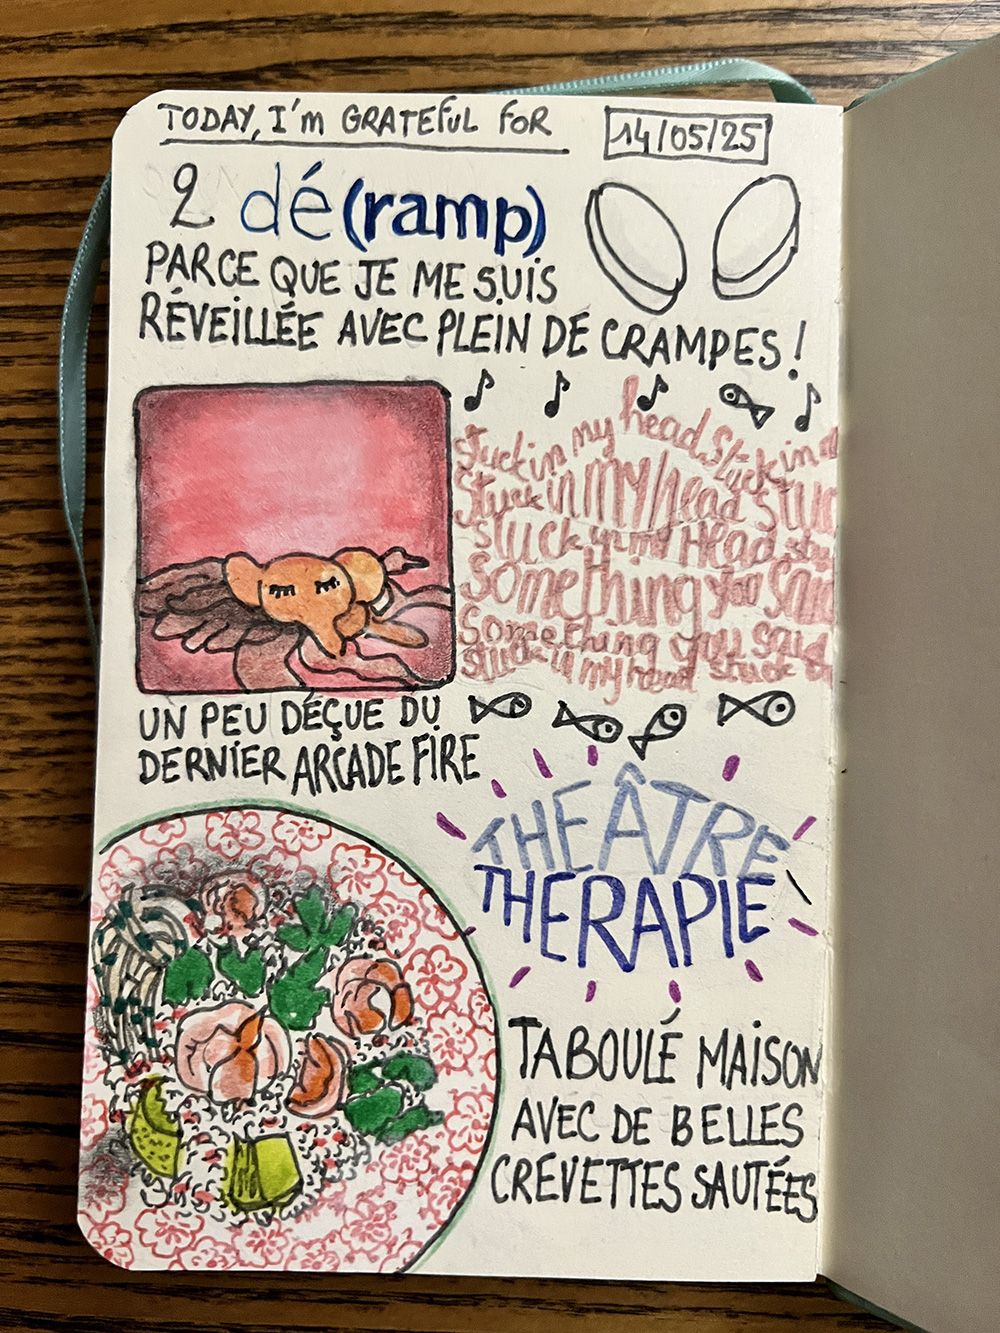 TODAY, I'm GRATEFUL FOR
14/05/25
2 dé(ramp)
PARCE QUE JE ME SUIS
RÉVEILLÉE AVEC PLEIN DE CRAMPES !
stuck in my head, stuck in
stuck in my head stuc
stuck in my head
something you said
something you said
stuck in my head stuck
UN PEU DÉÇUE DU
DERNIER ARCADE FIRE
THEÂTRE
THERAPIE
TABOULÉ MAISON
AVEC DE BELLES
CREVETTES SAUTÉES